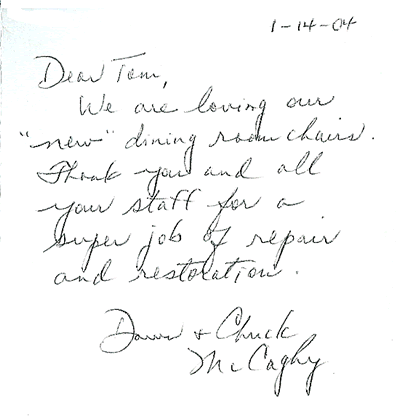 1-14-04
Dear Tom,
We are loving our
"new" dining room chairs.
Thank you and all
your staff for a
super job of repair
and restoration.
Dawn + Chuck
McCaghy